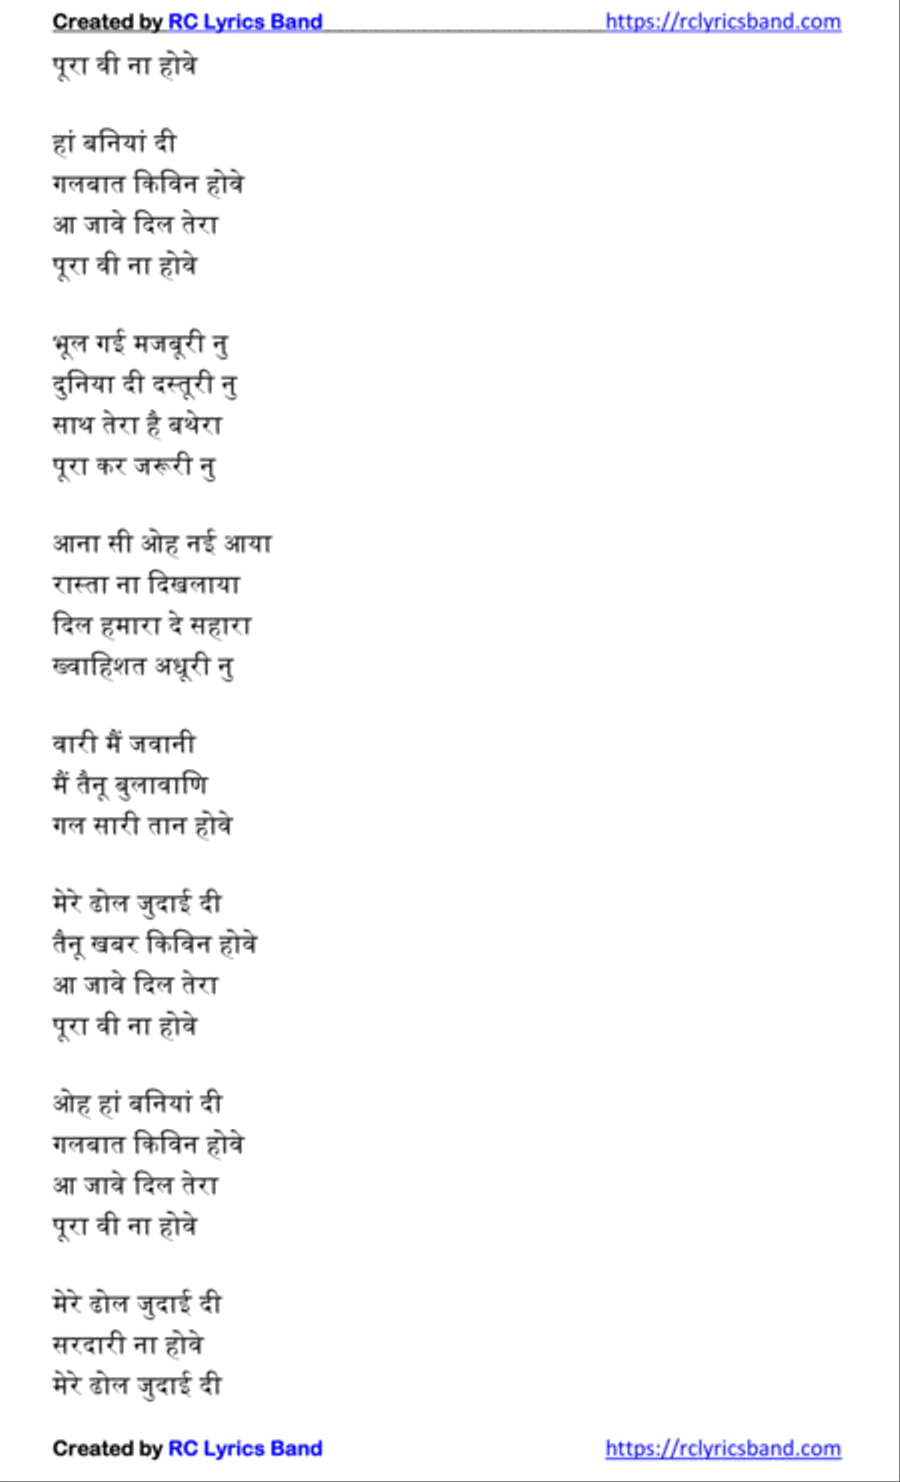 Created by RC Lyrics Band https://rclyricsband.com
पूरा वी ना होवे
हां बनियां दी
गलबात किविन होवे
आ जावे दिल तेरा
पूरा वी ना होवे
भूल गई मजबूरी नु
दुनिया दी दस्तूरी नु
साथ तेरा है बथेरा
पूरा कर जरूरी नु
आना सी ओह नई आया
रास्ता ना दिखलाया
दिल हमारा दे सहारा
ख्वाहिशत अधूरी नु
वारी मैं जवानी
मैं तैनू बुलावाणि
गल सारी तान होवे
मेरे ढोल जुदाई दी
तैनू खबर किविन होवे
आ जावे दिल तेरा
पूरा वी ना होवे
ओह हां बनियां दी
गलबात किविन होवे
आ जावे दिल तेरा
पूरा वी ना होवे
मेरे ढोल जुदाई दी
सरदारी ना होवे
मेरे ढोल जुदाई दी
Created by RC Lyrics Band https://rclyricsband.com